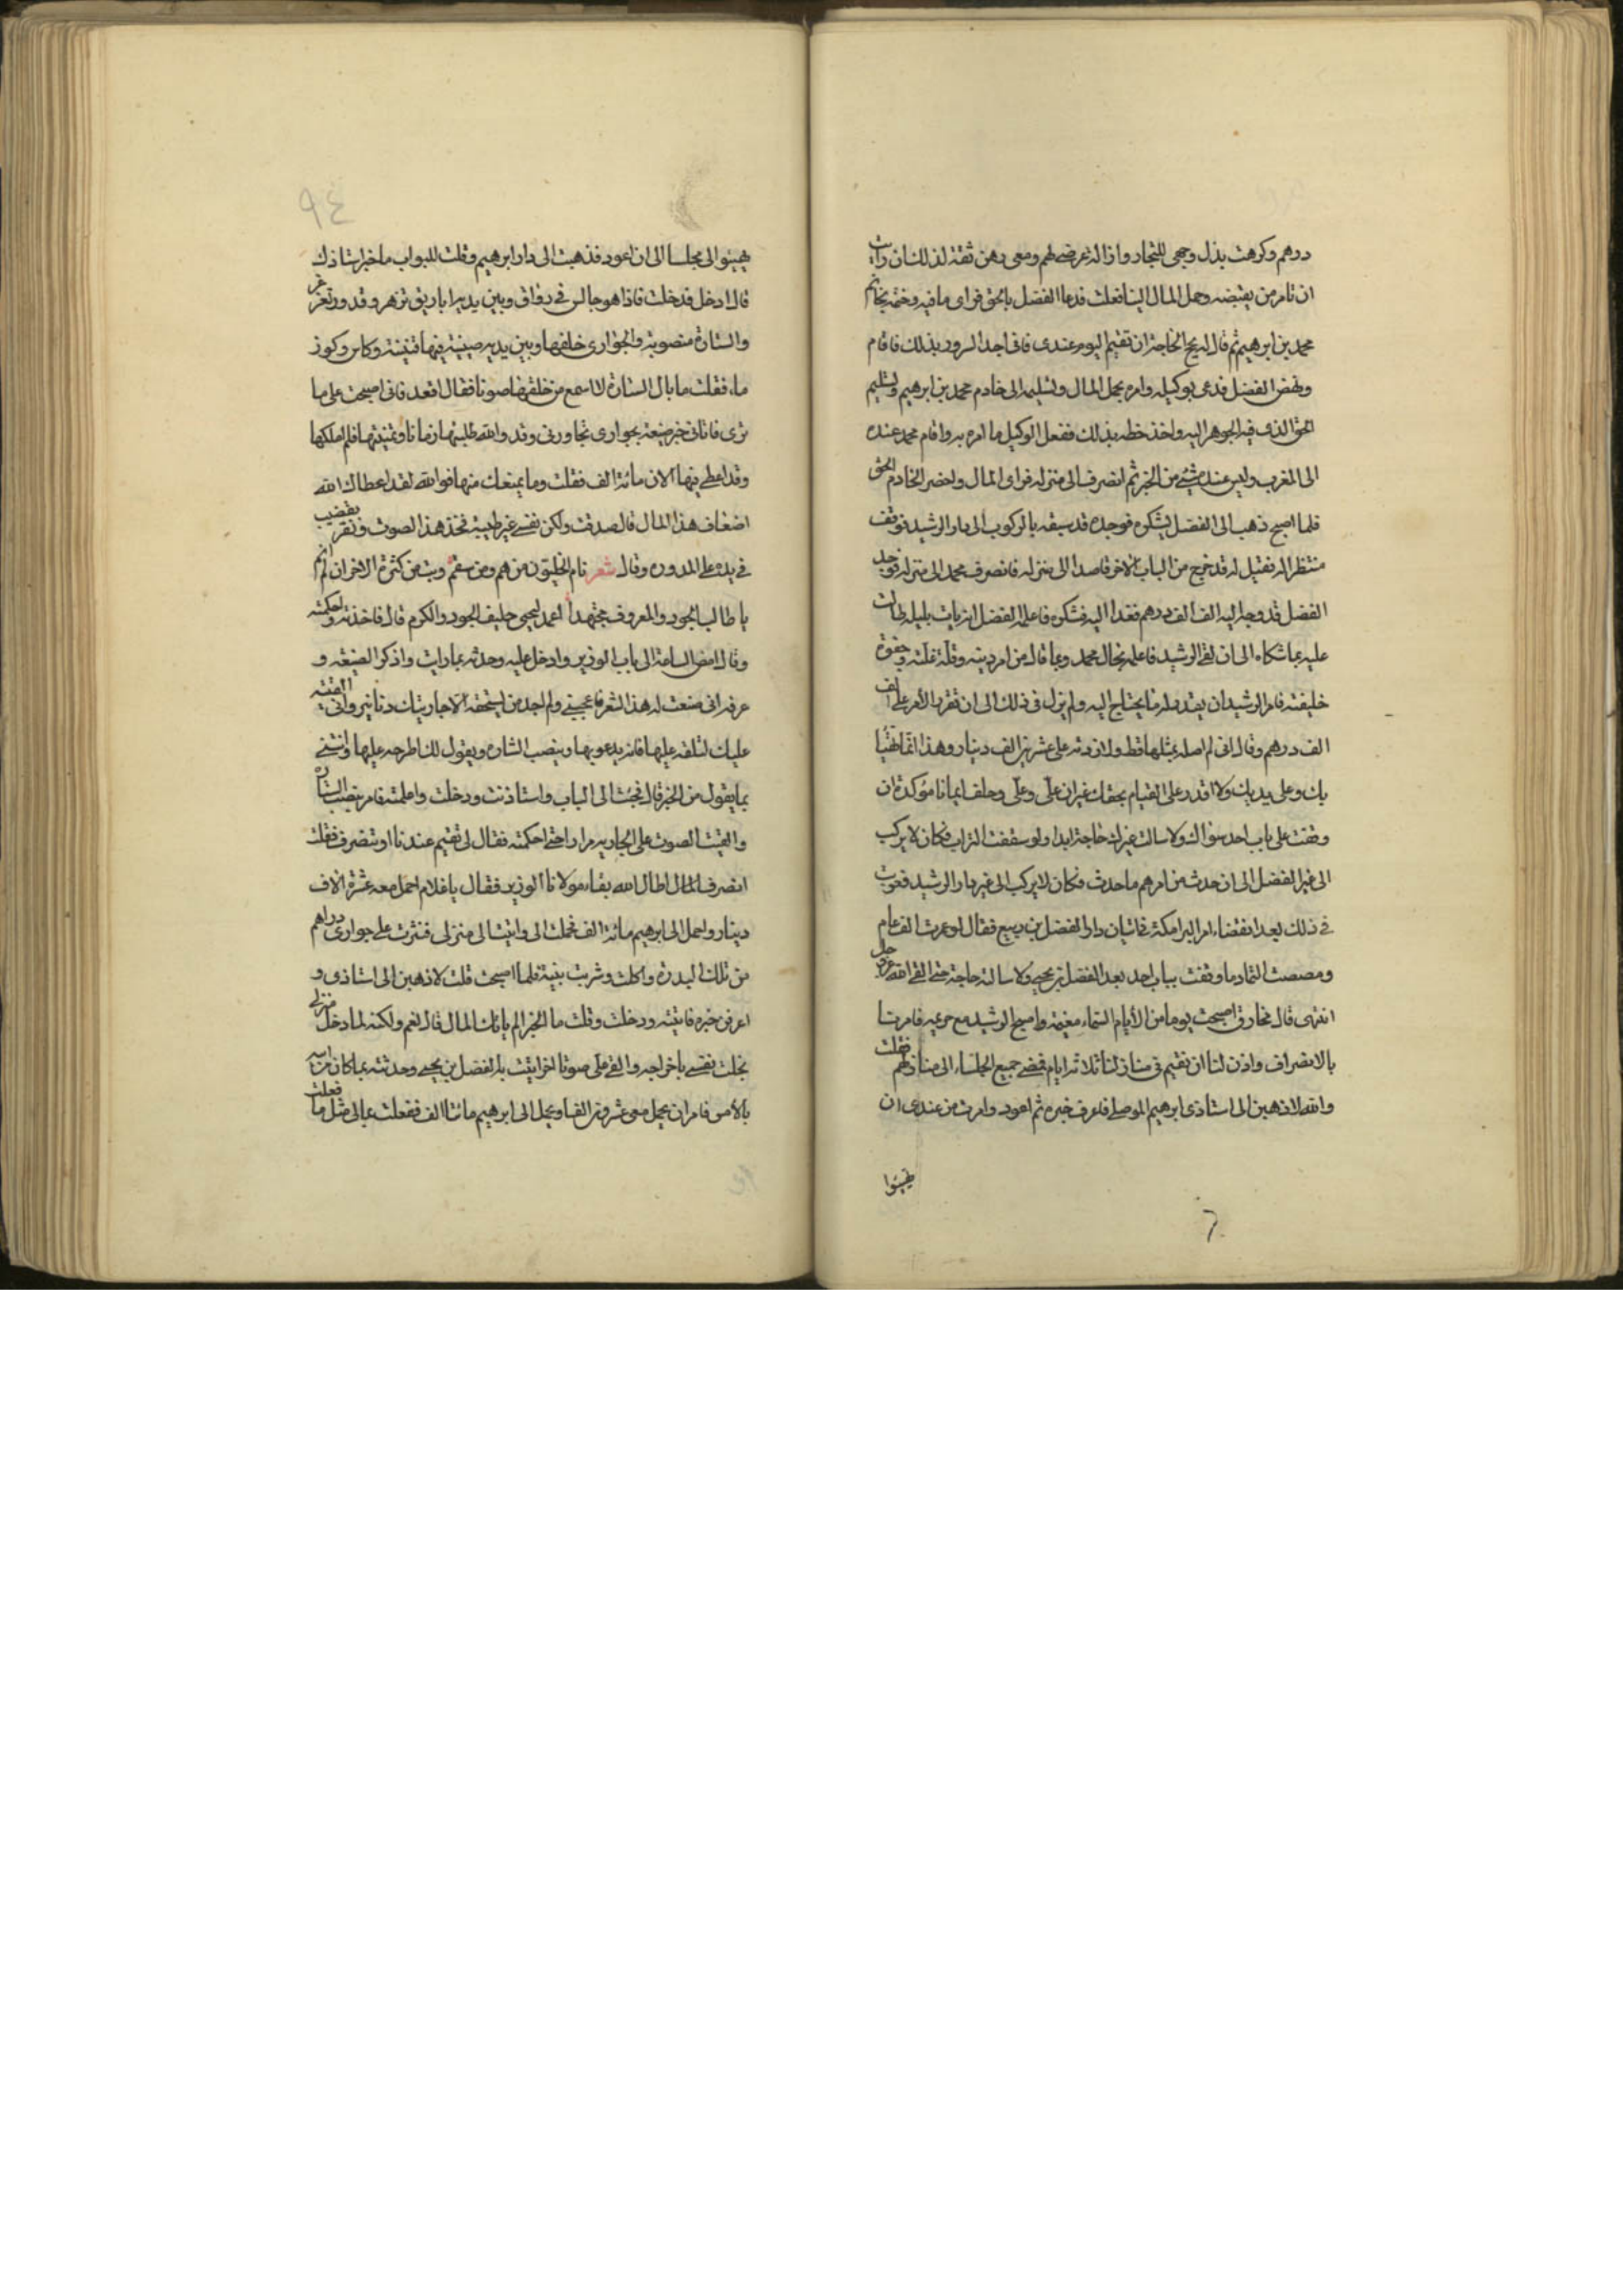 درهم وكرهت بذل وجهى للتجار واذالة عرضى لهم ومعى رهن ثقة لذلك فان رايت
ان تامر من يقبضه وحمل المال الينا فعلت فدعا الفضل بالحق فراى ما فيه وختمه بخاتم
محمد بن ابرهيم ثم قال له نجح الحاجة ان تقيم اليوم عندى فانى اجد السرور بذلك فاقام
ونهض الفضل فدعى بوكيله وامره بحمل المال وتسليمه الى خادم محمد بن ابرهيم وتسليم
الحق الذى فيه الجوهر اليه واخذ خطه بذلك ففعل الوكيل ما امره به واقام محمد عنده
الى المغرب وليس عنده شىء من الخبر ثم انصرف الى منزله فراى المال واحضر الخادم الحق
فلما اصبح ذهب الى الفضل ليشكره فوجده قد سبقه بالركوب الى دار الرشيد فوقف
منتظرا له فقيل له قد خرج من الباب الاخر قاصدا الى منزله فانصرف محمد الى منزله فوجد
الفضل قد وجه اليه الف الف درهم فغدا اليه فشكره فاعلمه الفضل انه بات بليلة طالت
عليه بما شكاه الى ان لقى الرشيد فاعلمه بحال محمد وبما قاله من امر دينه وقلة غلته وجفوة
خليفته فامر الرشيد ان يقدم له ما يحتاج اليه ولم يزل فى ذلك الى ان تقرر الامر على الف
الف درهم وقال انى لم اصله بمثلها قط ولا زدته على عشرين الف دينار وهذا انما تهيا
بك وعلى يديك ولا اقدر على القيام بحقك غير ان على وعلى وحلف ايمانا مؤكدة ان
وقفت على باب احد سواك ولا سالت غيرك حاجة ابدا ولو سففت التراب فكان لا يركب
الى غير الفضل الى ان حدث من امرهم ما حدث فكان لا يركب الى غير دار الرشيد فعوتب
فى ذلك بعد انقضاء امر البرامكة فى اتيان دار الفضل بن ربيع فقال لو عمرت الف عام
ومصصت الثماد ما وقفت بباب احد بعد الفضل بن يحيى ولا سالته حاجة حتى القى الله عز وجل
انتهى قال مخارق اصبحت يوما من الايام السماء مغيمة واصبح الرشيد مع حرمه فامرنا
بالانصراف واذن لنا ان نقيم فى منازلنا ثلاثة ايام فمضى جميع الجلساء الى منازلهم فقلت
والله لاذهبن الى استاذى ابرهيم الموصلى فاعرف خبره ثم اعود وامرت من عندى ان
يهيئوا
٩٤
يهيئوا لى مجلسا الى ان اعود فذهبت الى دار ابرهيم وقلت للبواب ما خبر استاذك
قال ادخل فدخلت فاذا هو جالس فى رواق وبين يديه اباريق تزهر وقدور تغرغر
والستارة منصوبة والجوارى خلفها وبين يديه صينية فيها قنينة وكاس وكوز
ماء فقلت ما بال الستارة لا اسمع من خلفها صوتا فقال اقعد فانى اصبحت على ما
ترى فاتانى خبر ضيعة بجوارى تجاورنى وقد والله طلبتها زمانا وتمنيتها فلم املكها
وقد اعطى فيها الان مائة الف فقلت وما يمنعك منها فوالله لقد اعطاك الله
اضعاف هذا المال قال صدقت ولكن نفسى غير طيبة فخذ هذا الصوت ونقر بقضيب
فى يده على المدوره وقال شعر نام الخليون من هم ومن سقم وبت من كثرة الاحزان لم انم
يا طالب الجود والمعروف مجتهدا اعمد ليحيى حليف الجود والكرم قال فاخذته واحكمته
وقال امض الساعة الى باب الوزير وادخل عليه وحدثه بما رايت واذكر الضيعة و
عرفه انى صنعت له هذا الشعر فاعجبنى ولم اجد من يستحقه الا جاريتك دنانير وانى القيته
عليك لتلقه عليها فانه يدعو بها وينصب الستاره ويقول لك اطرحه عليها وائتنى
بما يقول من الخبر قال فجئت الى الباب واستاذنت ودخلت واعلمته فامر بنصب الستاره
والقيت الصوت على الجاريه مرارا حتى احكمته فقال لى تقيم عندنا او تنصرف فقلت
انصرف اطال الله بقاء مولانا الوزير فقال يا غلام احمل معه عشرة الاف
دينار واحمل الى ابرهيم مائة الف فحملت الى واتيت الى منزلى فنثرت على جوارى دراهم
من تلك البدرة واكلت وشربت بقية فلما اصبحت قلت لاذهبن الى استاذى و
اعرفن خبره فاتيته ودخلت وقلت ما الخبر الم ياتك المال قال نعم ولكنه لما دخل منزلى
بخلت نفسى باخراجه والقى على صوتا اخر اتيت به الفضل بن يحيى وحدثته بما كان من ابيه
بالامس فامر ان يحمل معى عشرون الفا ويحمل الى ابرهيم مائتا الف ففعلت بمالى مثل ما فعلت